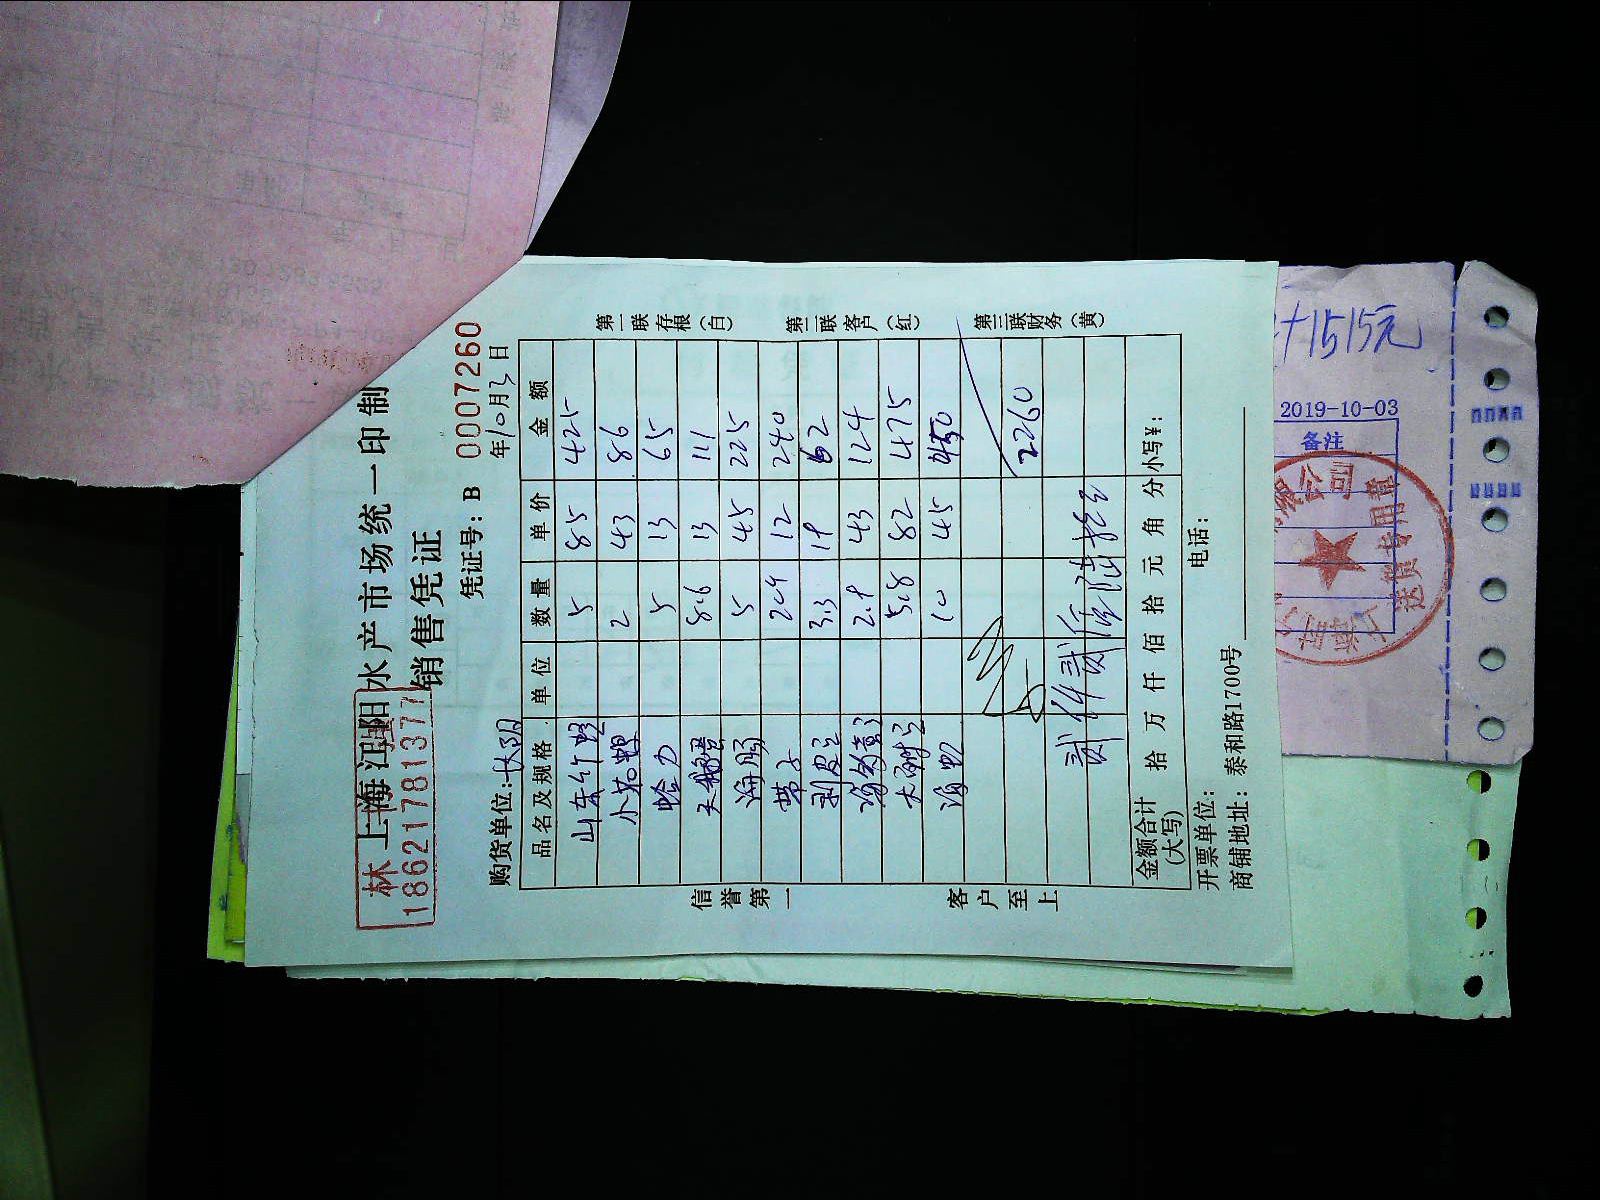 林 上海江阳水产市场统一印制
18621781377
销售凭证
凭证号: B 0007260
购货单位: 长阳 年10月3日
品名及规格 单位 数量 单价 金额
山东竹蛏 5 85 425
小花螺 2 43 86
蛤力 5 13 65
8.6 13 111
海肠 5 45 225
带子 20个 12 240
3.3 19 62
2.9 43 124
5.8 82 475
10 45 450
2260
贰仟贰佰陆拾元
金额合计(大写) 拾 万 仟 佰 拾 元 角 分 小写¥:
开票单位: 电话:
商铺地址: 泰和路1700号
信誉第一 客户至上
第一联存根(白) 第二联客户(红) 第三联财务(黄)
1515元
2019-10-03
备注
送货专用章